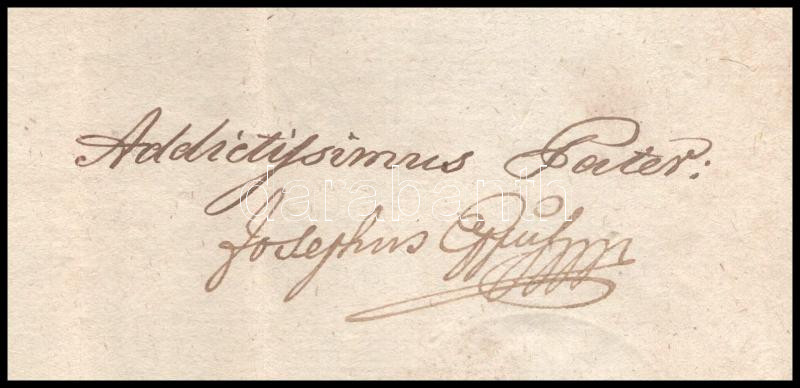 Addictissimus Pater:
Josephus
darabanth